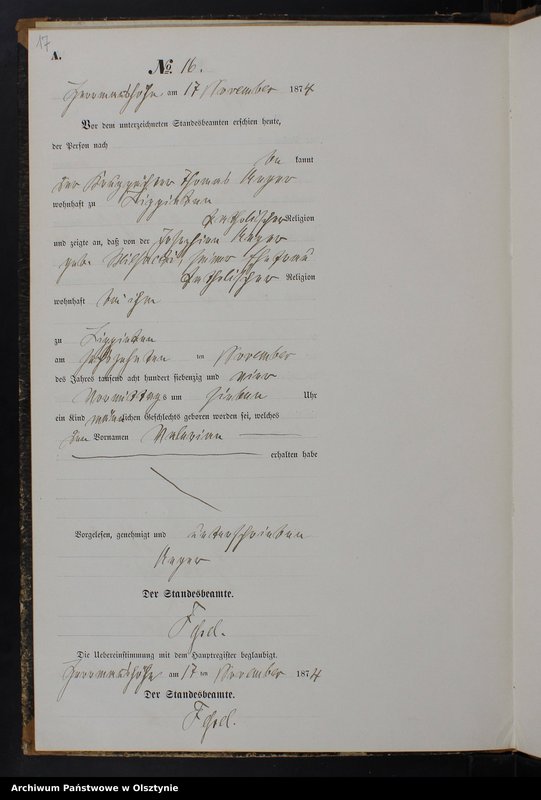 17
A.
No. 16.
am 17 November 1874
Vor dem unterzeichneten Standesbeamten erschien heute,
der Person nach
be kannt
der Thomas
wohnhaft zu
katholischer Religion
und zeigte an, daß von der
geb. seiner Ehefrau
katholischer Religion
wohnhaft bei ihm
zu
am sechszehnten ten November
des Jahres tausend acht hundert siebenzig und vier
Vormittags um sieben Uhr
ein Kind männlichen Geschlechts geboren worden sei, welches
den Vornamen Valerian
erhalten habe
Vorgelesen, genehmigt und unterschrieben
Der Standesbeamte.
Die Uebereinstimmung mit dem Hauptregister beglaubigt.
am 17 ten November 1874
Der Standesbeamte.
Archiwum Państwowe w Olsztynie